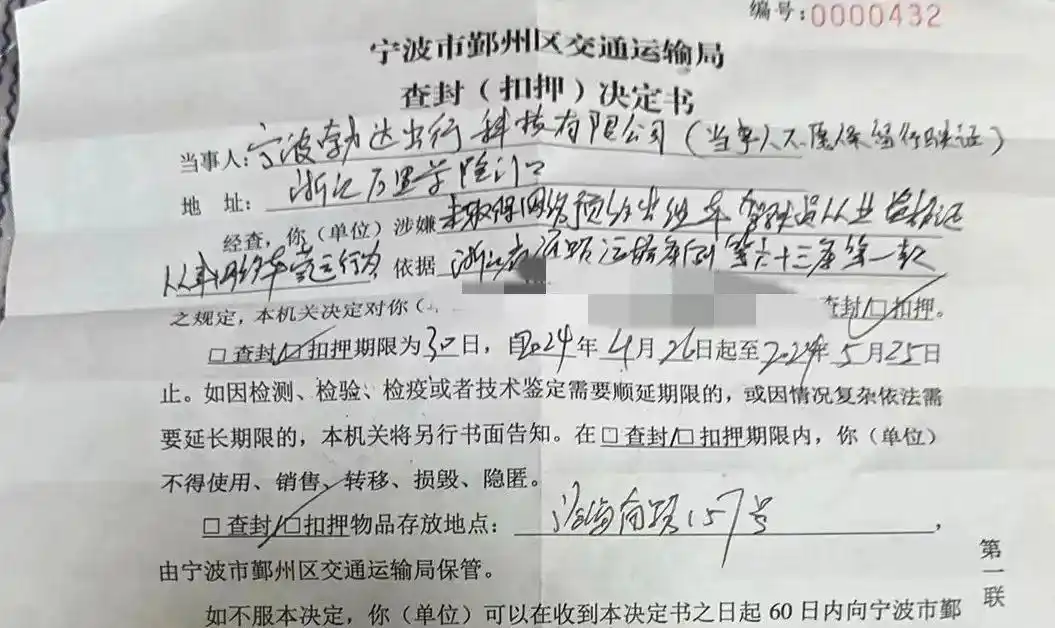 编号:0000432
宁波市鄞州区交通运输局
查封（扣押）决定书
当事人:宁波勃达出行科技有限公司（当事人不愿保留行驶证）
地 址: 浙江万里学院门口
经查，你（单位）涉嫌未取得网络预约出租车驾驶员从业资格证
从事网约车营运行为 依据 浙江省道路运输条例第六十三条第一款
之规定，本机关决定对你（ 查封/□扣押。
□查封/☑扣押期限为30日，自2024年4月26日起至2024年5月25日
止。如因检测、检验、检疫或者技术鉴定需要顺延期限的，或因情况复杂依法需
要延长期限的，本机关将另行书面告知。在□查封/□扣押期限内，你（单位）
不得使用、销售、转移、损毁、隐匿。
□查封/☑扣押物品存放地点： 沧海南路157号，
由宁波市鄞州区交通运输局保管。
如不服本决定，你（单位）可以在收到本决定书之日起 60 日内向宁波市鄞
第一联